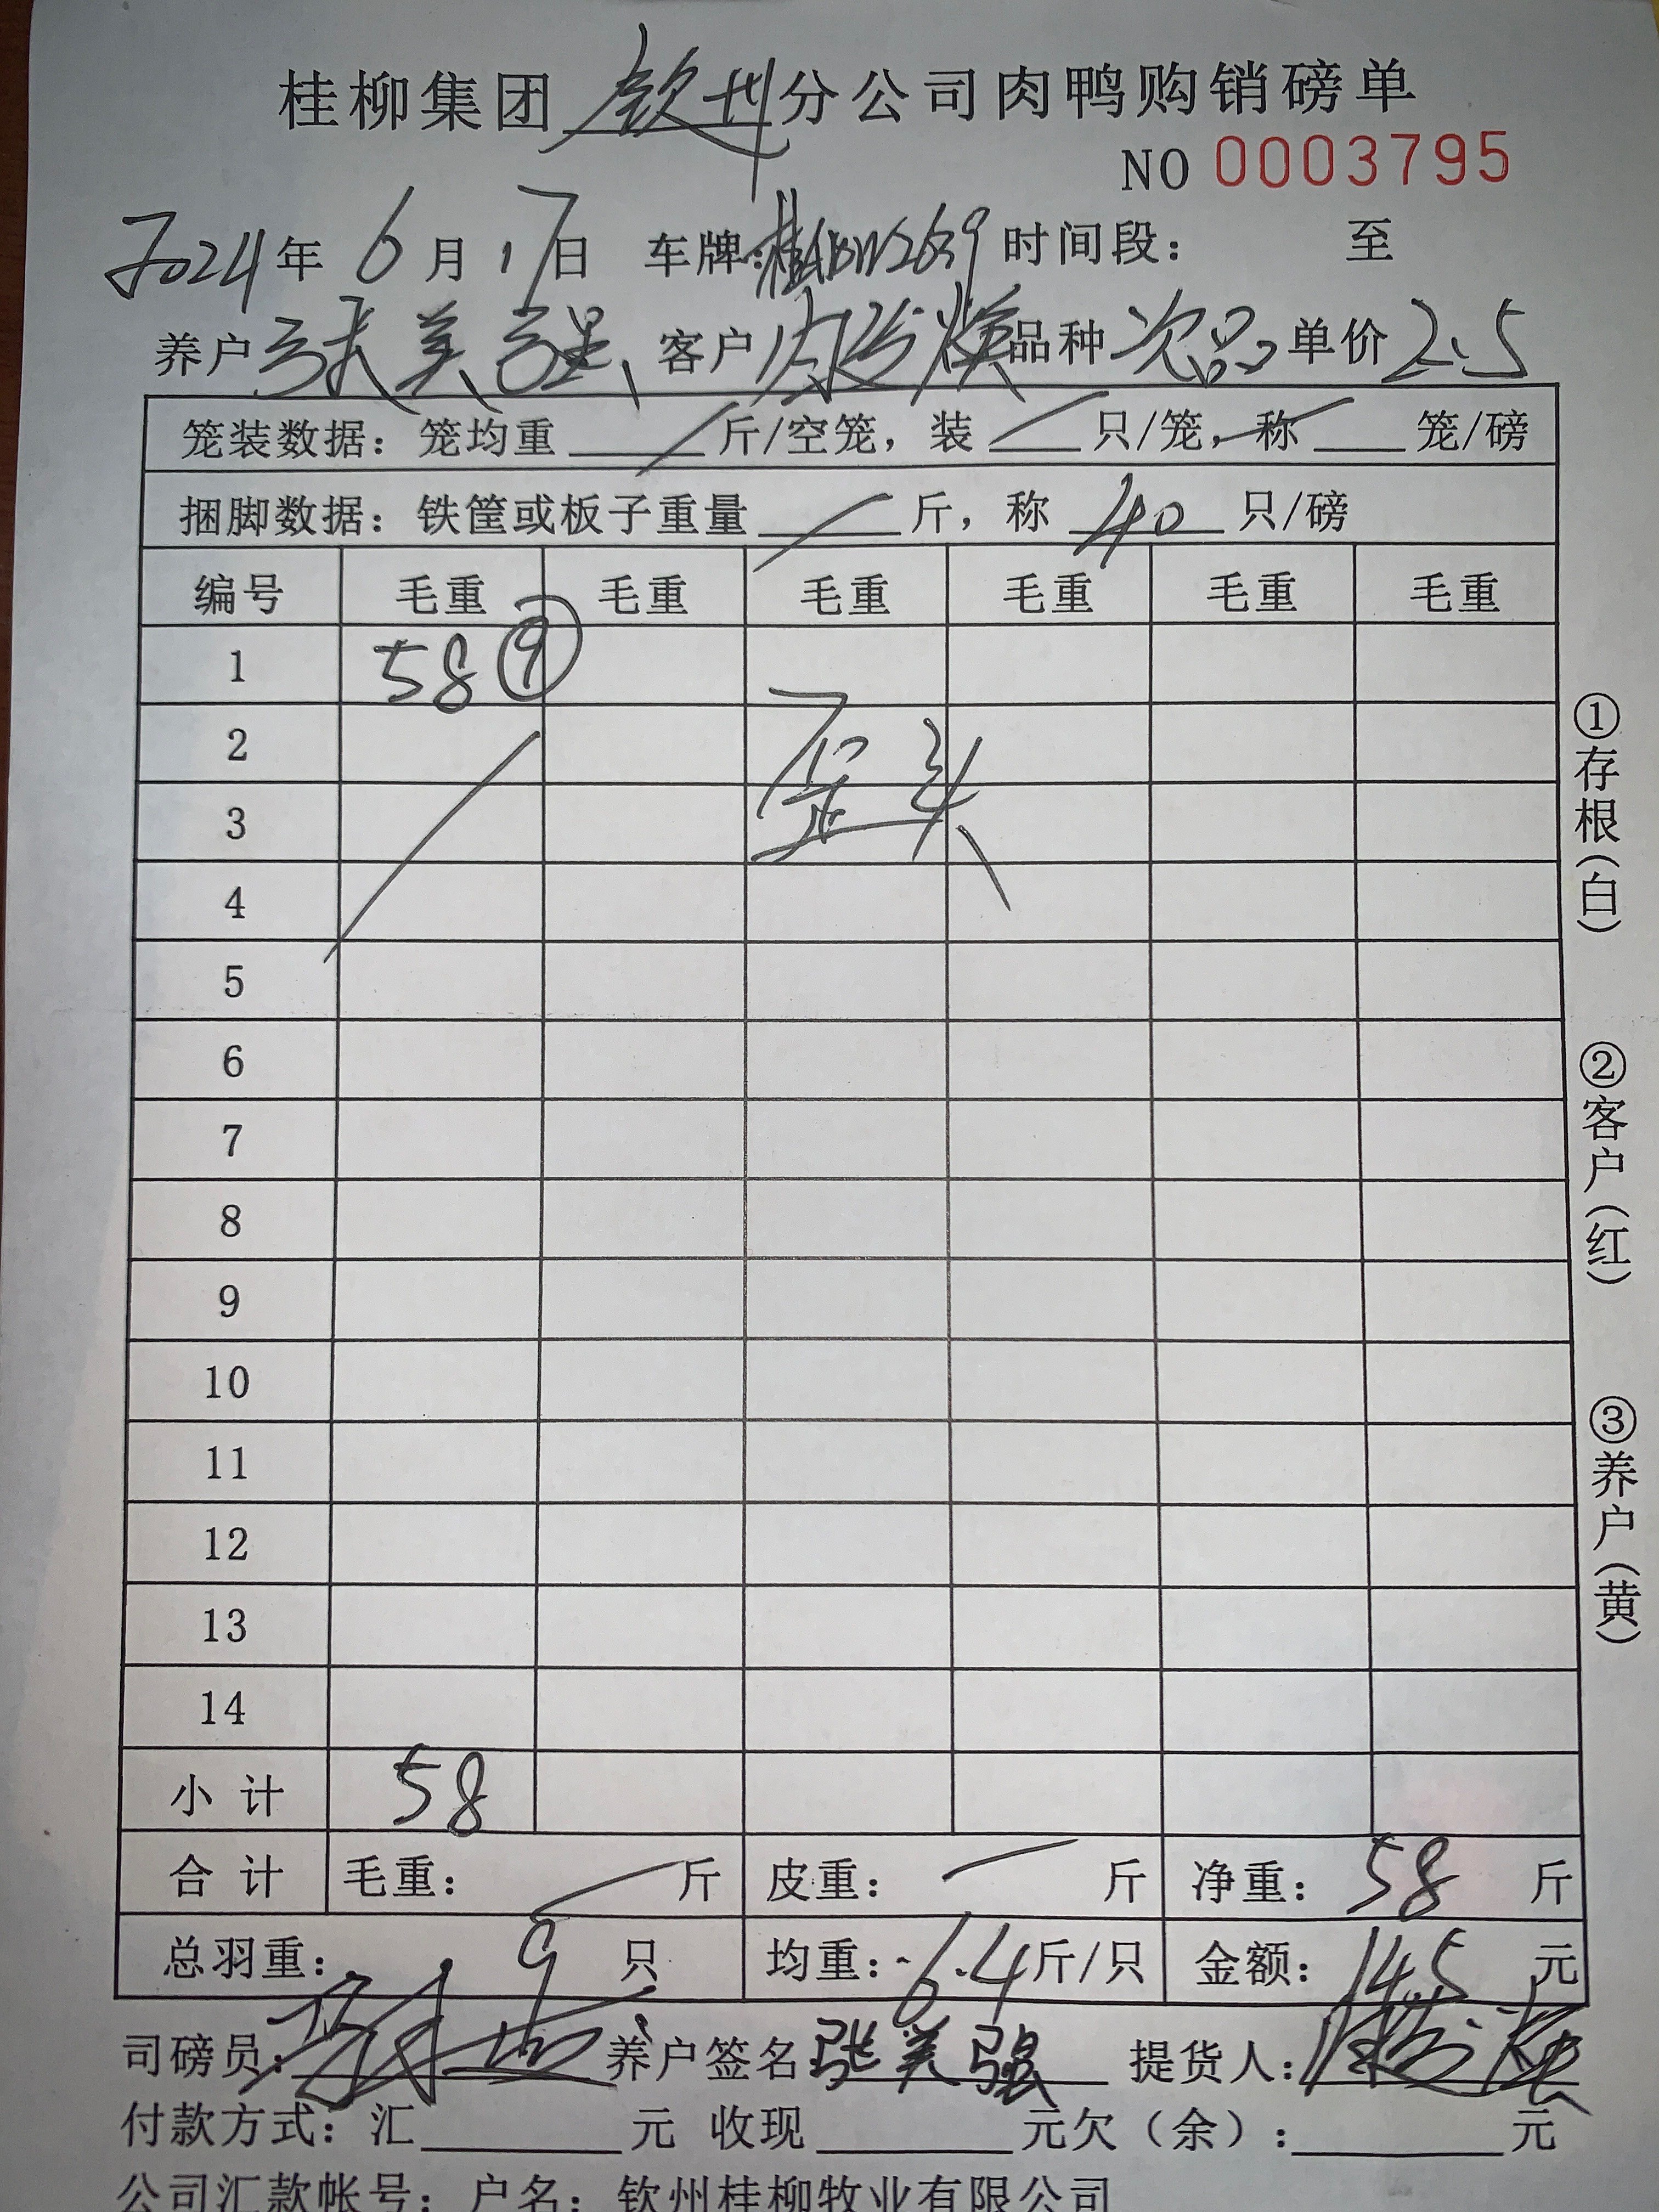 桂柳集团 钦州 分公司肉鸭购销磅单
NO 0003795
2024年 6月 17日 车牌: 时间段: 至
养户 张美强 客户 品种 次品 单价 2.5
笼装数据: 笼均重 斤/空笼, 装 只/笼, 称 笼/磅
捆脚数据: 铁筐或板子重量 斤, 称 40 只/磅
编号 毛重 毛重 毛重 毛重 毛重 毛重
1 58 ⑨
2
歪头
3
4
5
6
7
8
9
10
11
12
13
14
小计 58
合计 毛重: 斤 皮重: 斤 净重: 58 斤
总羽重: 9 只 均重: 6.4 斤/只 金额: 145 元
司磅员: 养户签名 张美强 提货人:
付款方式: 汇 元 收现 元 欠(余): 元
公司汇款帐号: 户名: 钦州桂柳牧业有限公司
①存根(白)
②客户(红)
③养户(黄)